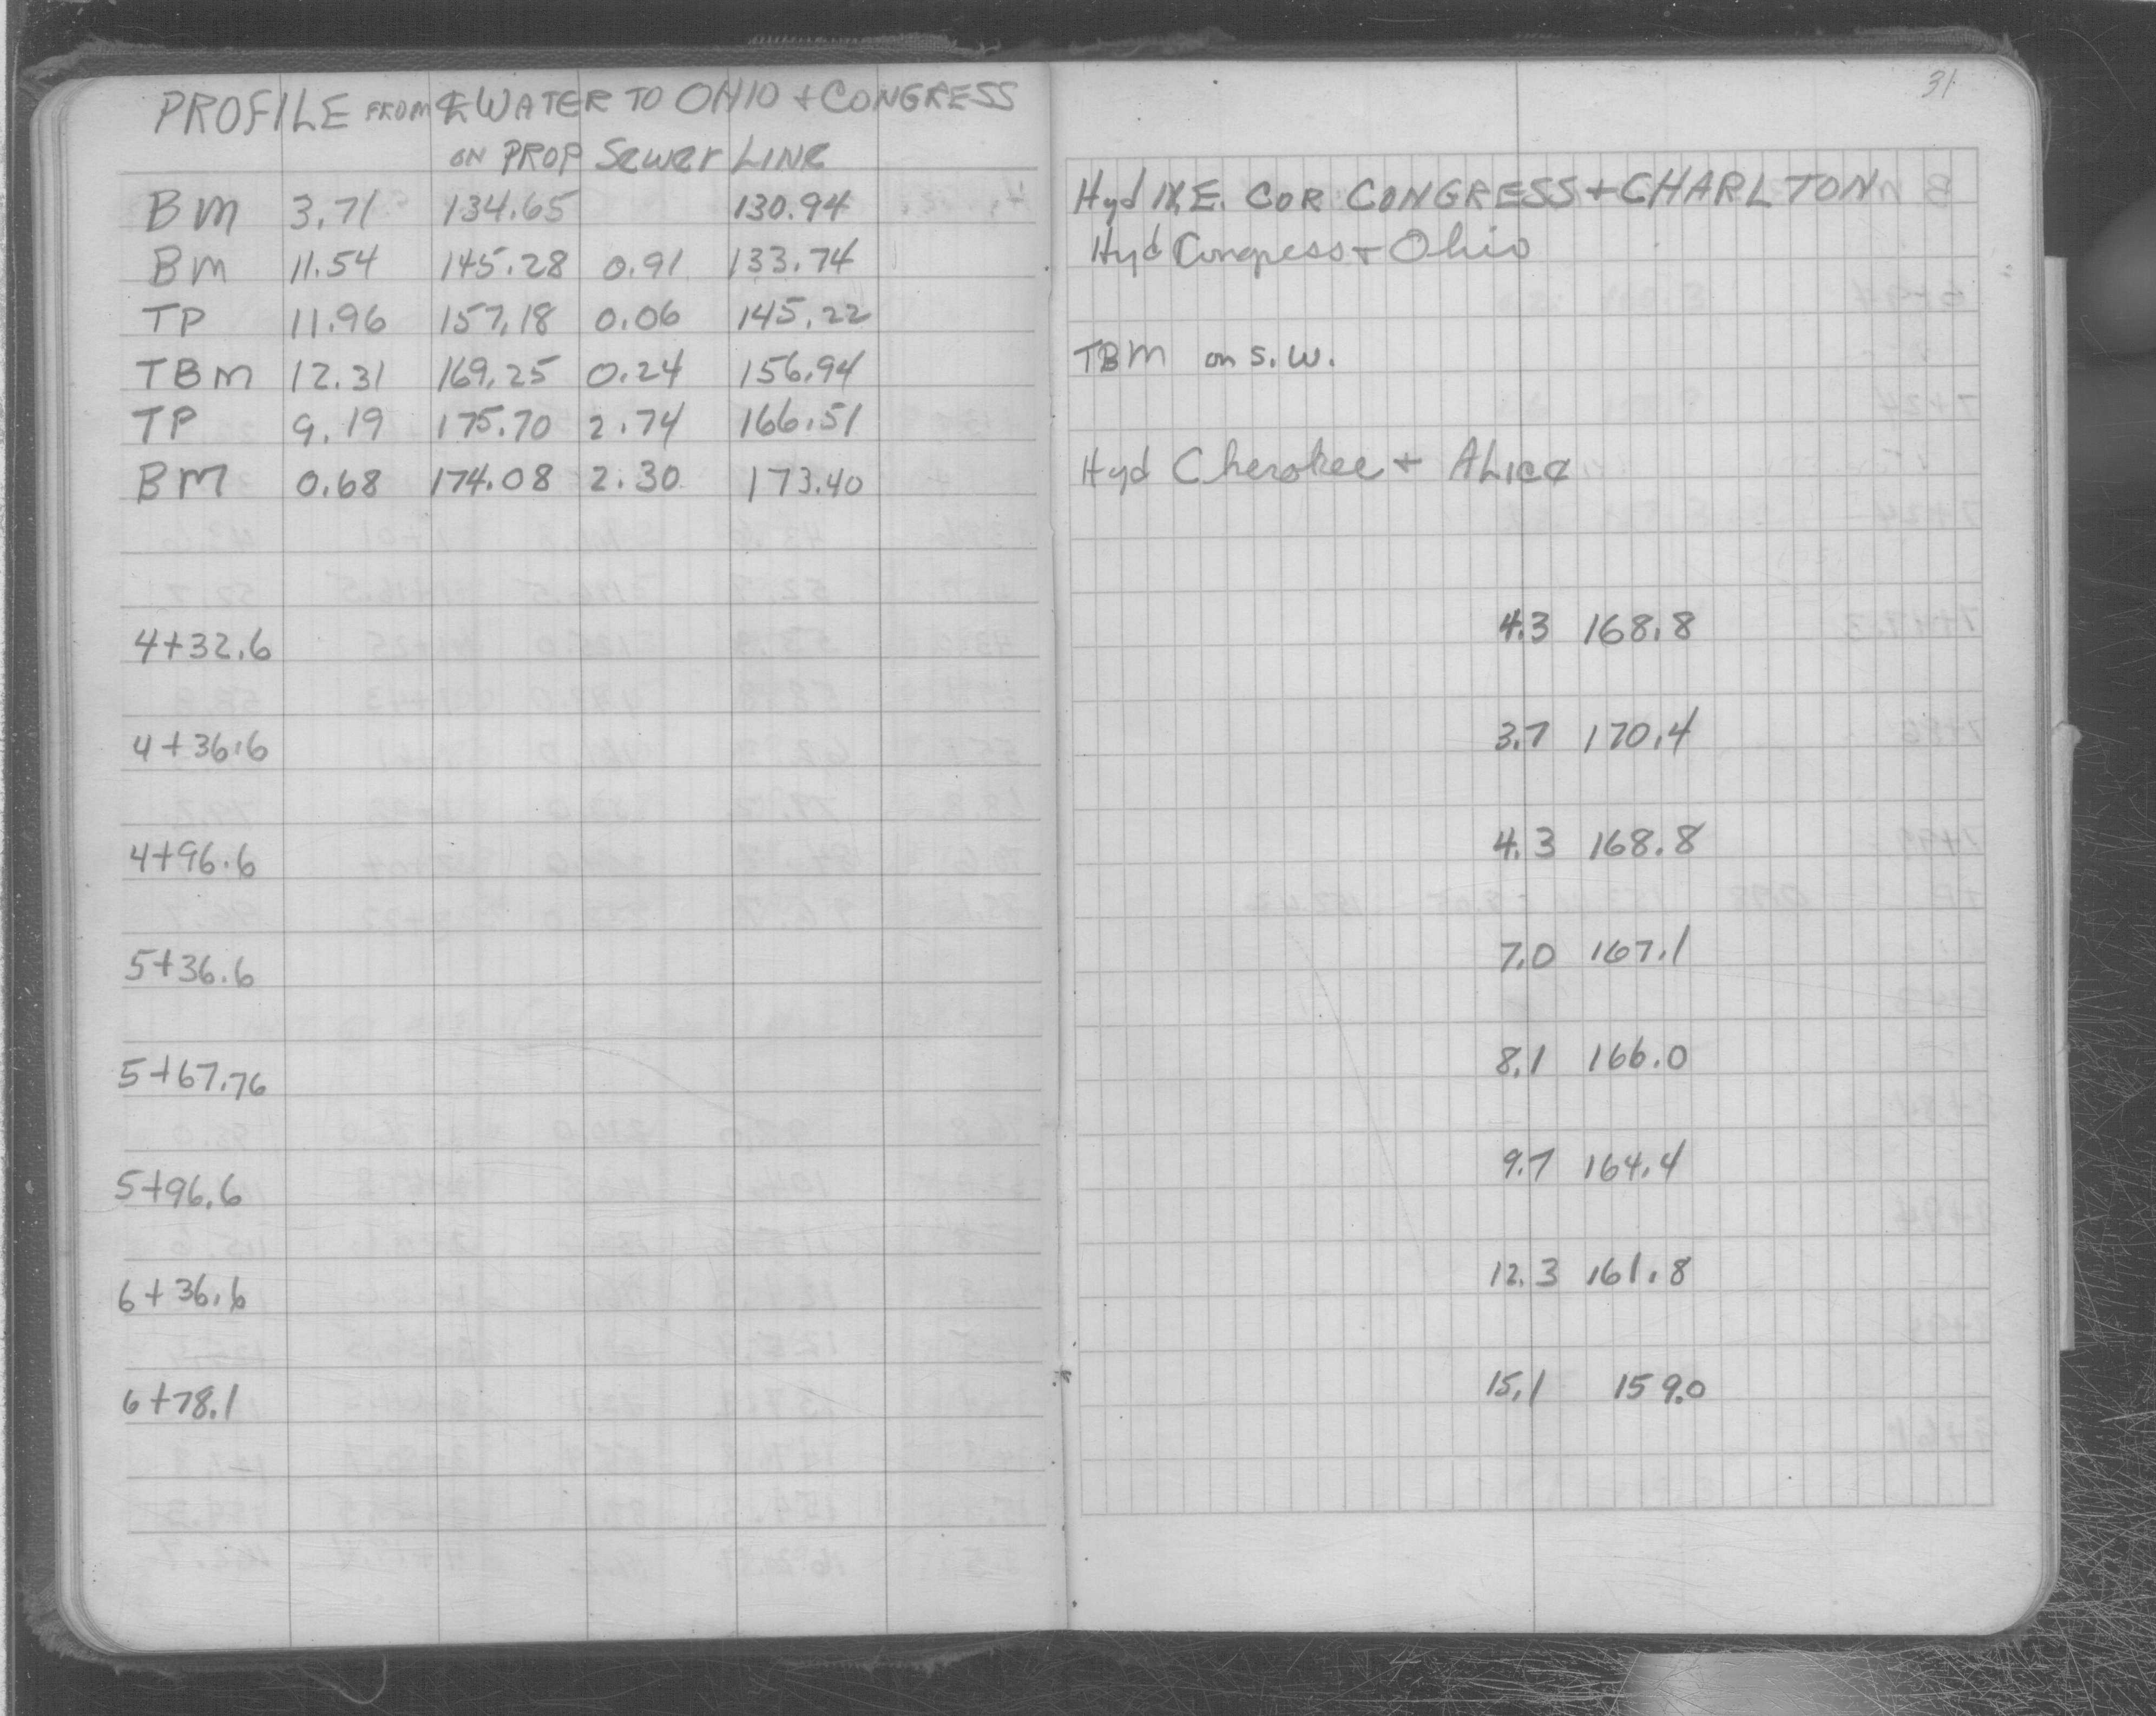 PROFILE FROM ℄ WATER TO OHIO + CONGRESS
ON PROP Sewer LINE
BM 3.71 134.65 130.94
BM 11.54 145.28 0.91 133.74
TP 11.96 157.18 0.06 145.22
TBM 12.31 169.25 0.24 156.94
TP 9.19 175.70 2.74 166.51
BM 0.68 174.08 2.30 173.40
4+32.6
4+36.6
4+96.6
5+36.6
5+67.76
5+96.6
6+36.6
6+78.1
31
Hyd N.E. COR CONGRESS + CHARLTON
Hyd Congress + Ohio
TBM on S.W.
Hyd Cherokee + ALice
4.3 168.8
3.7 170.4
4.3 168.8
7.0 167.1
8.1 166.0
9.7 164.4
12.3 161.8
15.1 159.0